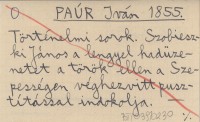 O PAÚR Iván 1855.
Történelmi sorok. Szobiesz-
ki János a lengyel hadüze-
netet a török ellen a Sze-
pességen véghezvitt pusz-
títással indokolja.